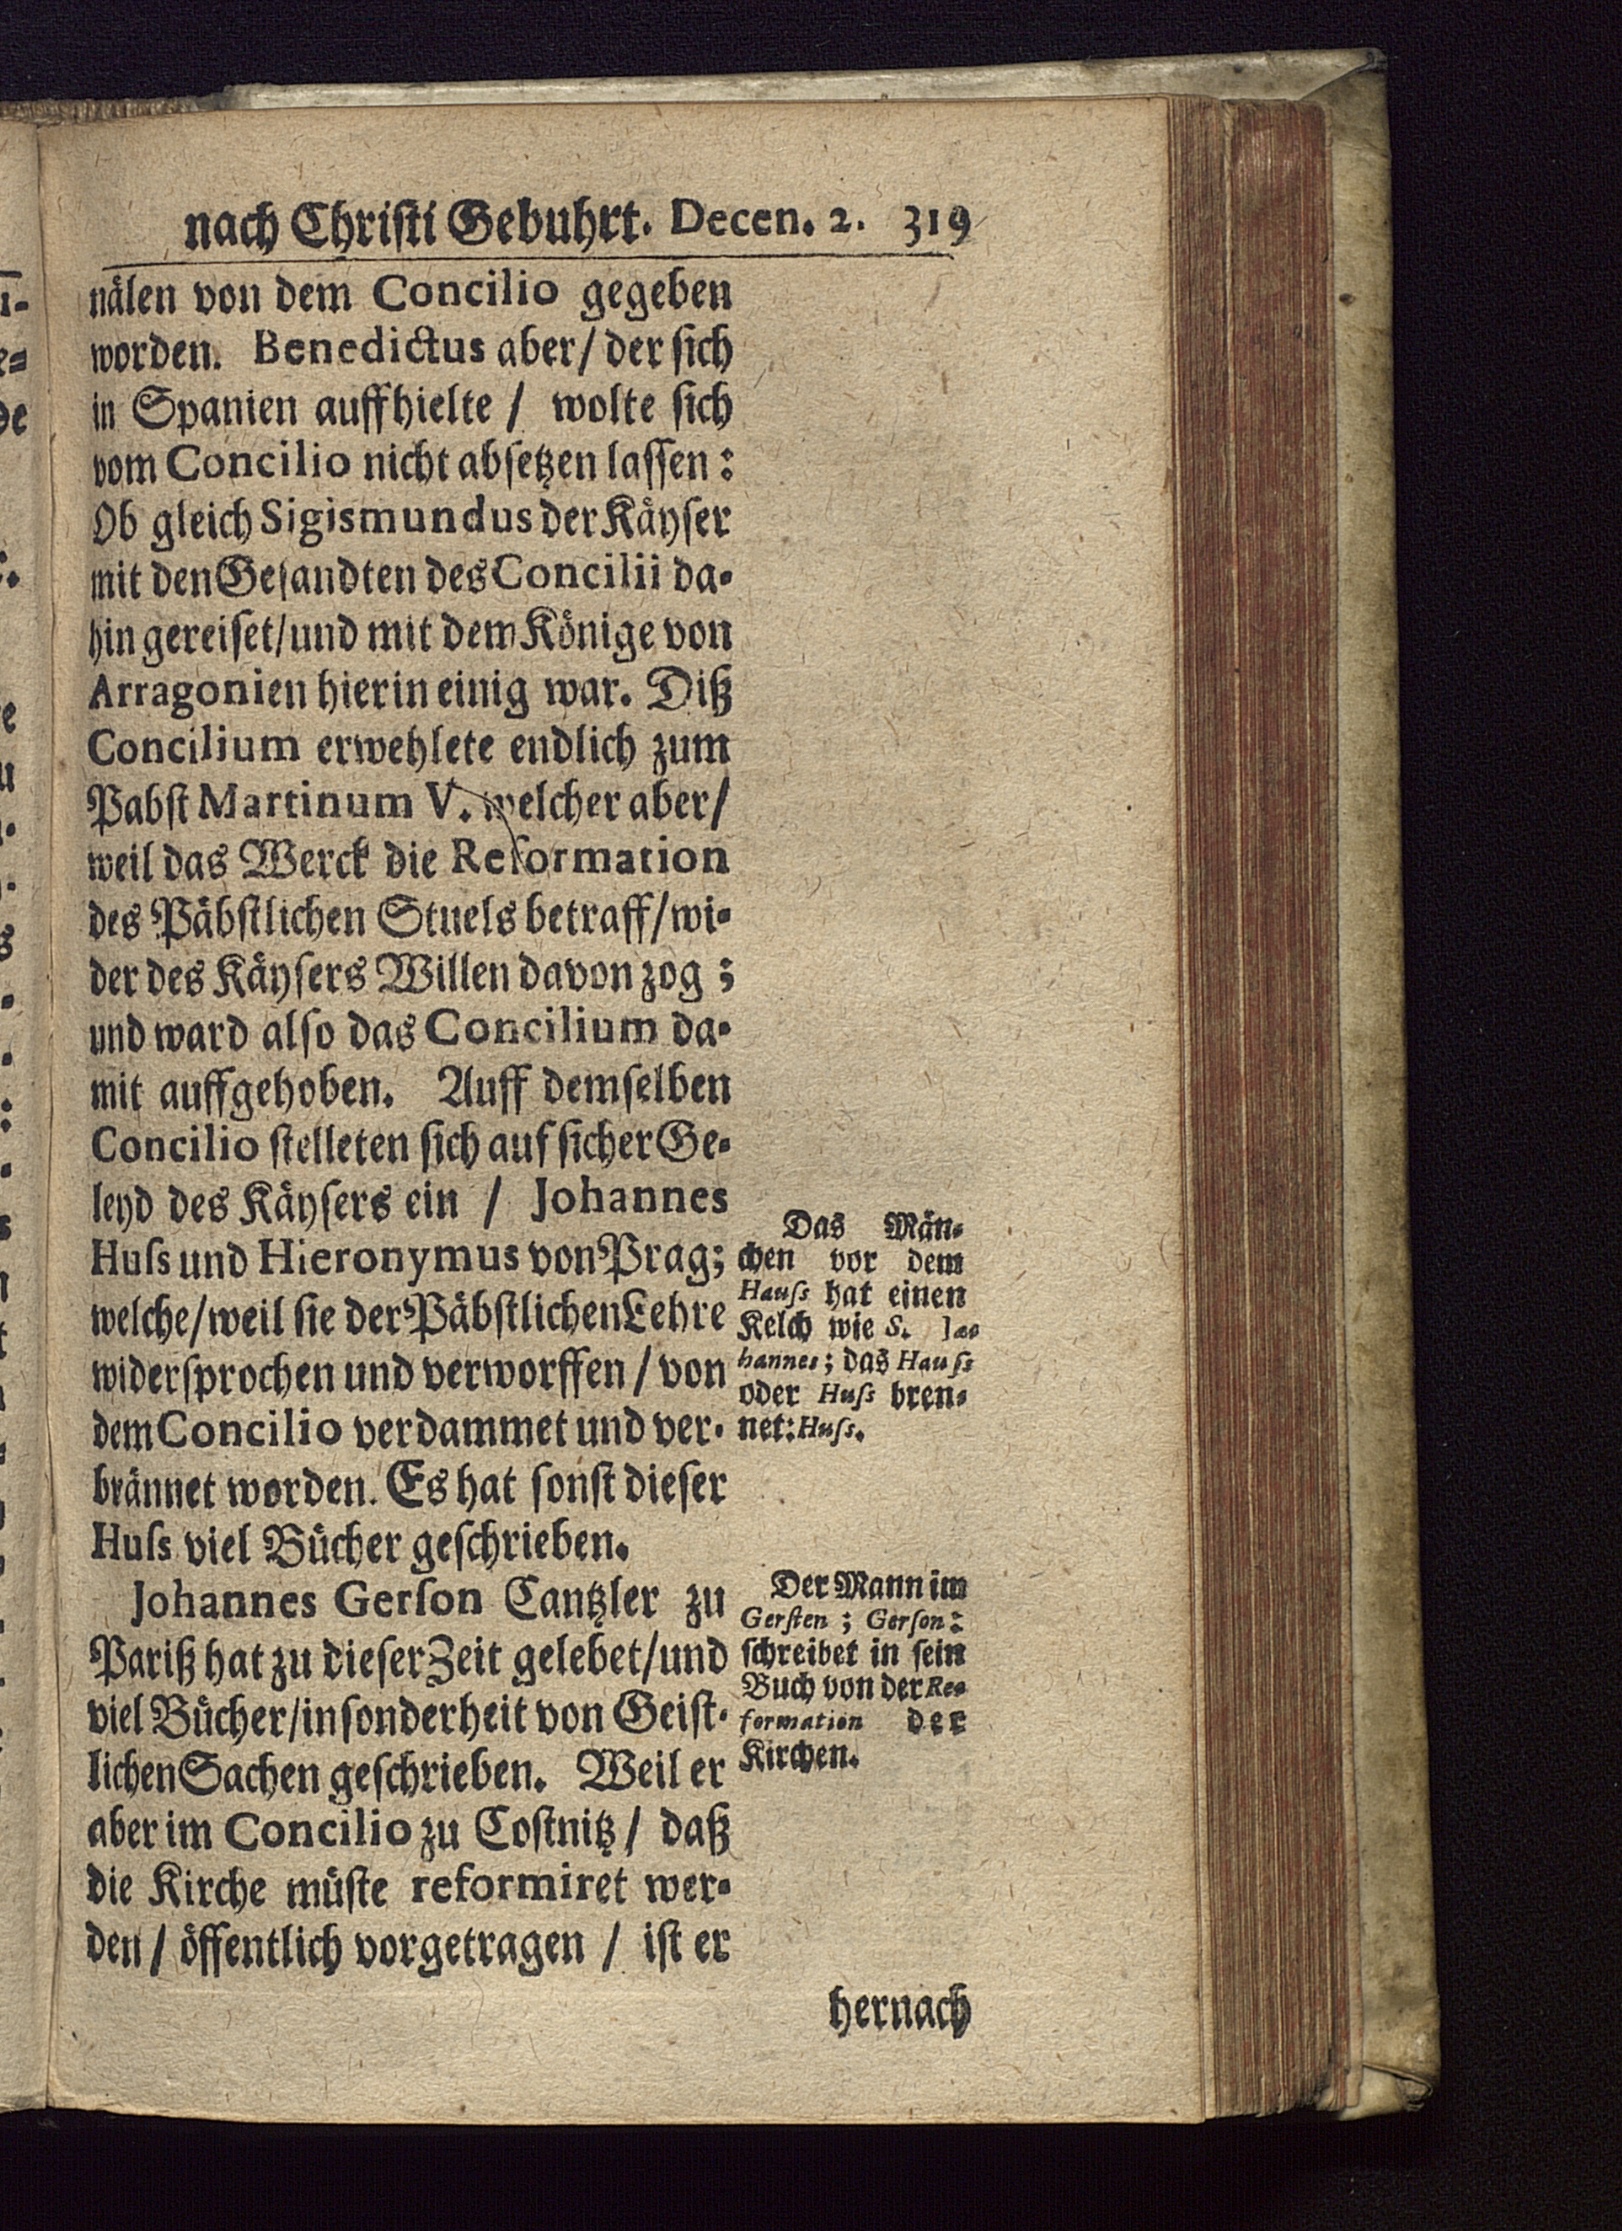 nach Chriſti Gebuhrt. Decen. 2. 319
nälen von dem Concilio gegeben
worden. Benedictus aber/ der ſich
in Spanien auffhielte / wolte ſich
vom Concilio nicht abſetzen laſſen:
Ob gleich Sigismundus der Käyſer
mit den Geſandten des Concilii da-
hin gereiſet/und mit dem Könige von
Arragonien hierin einig war. Diß
Concilium erwehlete endlich zum
Pabſt Martinum V. welcher aber/
weil das Werck die Reformation
des Päbſtlichen Stuels betraff/wi-
der des Käyſers Willen davon zog;
und ward alſo das Concilium da-
mit auffgehoben. Auff demſelben
Concilio ſtelleten ſich auf ſicher Ge-
leyd des Käyſers ein / Johannes
Huſs und Hieronymus von Prag;
welche/weil ſie der Päbſtlichen Lehre
widerſprochen und verworffen / von
dem Concilio verdammet und ver-
brännet worden. Es hat ſonſt dieſer
Huſs viel Bücher geſchrieben.
Das Män-
chen vor dem
Hauſs hat einen
Kelch wie S. Jo-
hannes; das Hauſs
oder Huſs bren-
net: Huſs.
Johannes Gerſon Cantzler zu
Pariß hat zu dieſer Zeit gelebet/und
viel Bücher/inſonderheit von Geiſt-
lichen Sachen geſchrieben. Weil er
aber im Concilio zu Coſtnitz / daß
die Kirche müſte reformiret wer-
den / öffentlich vorgetragen / iſt er
Der Mann im
Gerſten; Gerſon:
ſchreibet in ſein
Buch von der Re-
formation der
Kirchen.
hernach